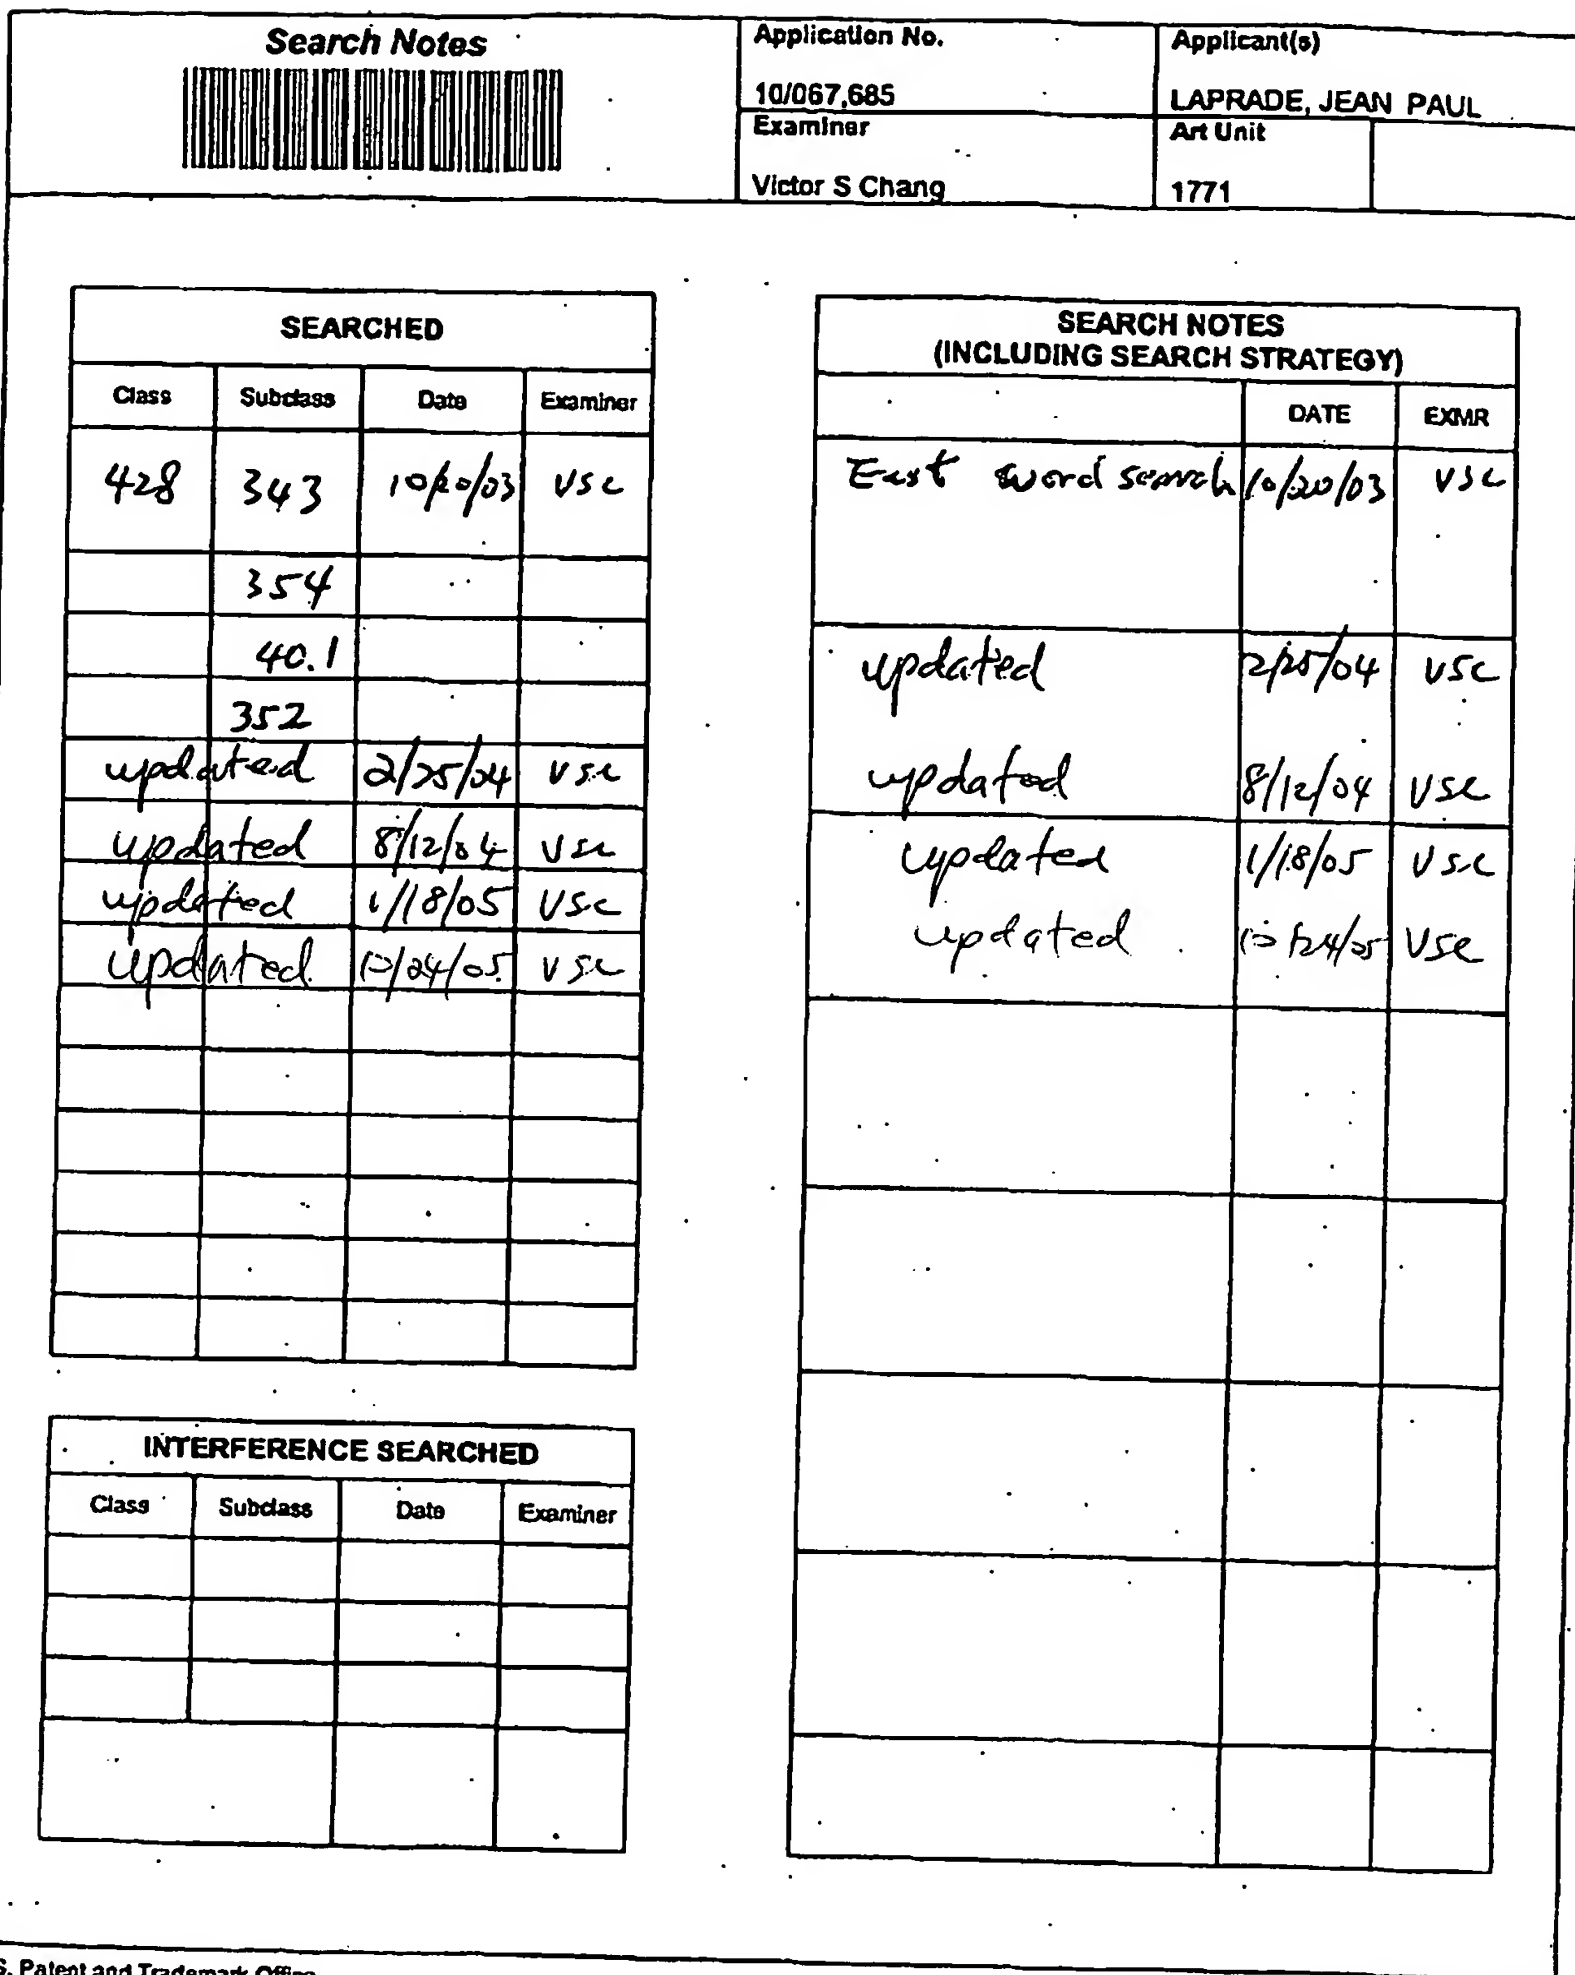 Search Notes
Application No.
10/067,685
Applicant(s)
LAPRADE, JEAN PAUL
Examiner
Victor S Chang
Art Unit
1771
SEARCHED
Class Subclass Date Examiner
428 343 10/20/03 VSC
354
40.1
352
updated 2/25/04 VSC
updated 8/12/04 VSC
updated 1/18/05 VSC
updated 10/24/05 VSC
INTERFERENCE SEARCHED
Class Subclass Date Examiner
SEARCH NOTES
(INCLUDING SEARCH STRATEGY)
DATE EXMR
East word search 10/20/03 VSC
updated 2/25/04 VSC
updated 8/12/04 VSC
updated 1/18/05 VSC
updated 10/24/05 VSC
S. Patent and Trademark Office